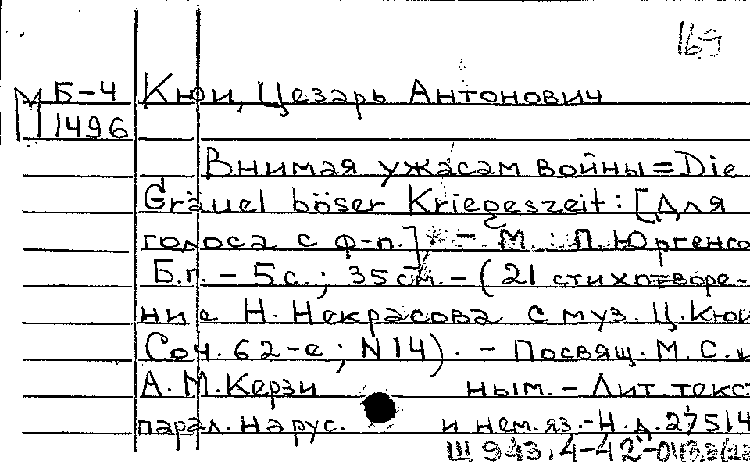 169
М Б-4 Кюи, Цезарь Антонович
1496
Внимая ужасам войны = Die
Gräuel böser Kriegeszeit: [Для
голоса с ф-п.] - М.: П. Юргенсо
Б.г. - 5 с.; 35 см. - (21 стихотворе-
ние Н. Некрасова с муз. Ц. Кюи
Соч. 62-е; N 14). - Посвящ. М. С. и
А. М. Керзи ным. - Лит. текс
парал. на рус. и нем. яз. - Н. д. 27514
Ш 943.4-42